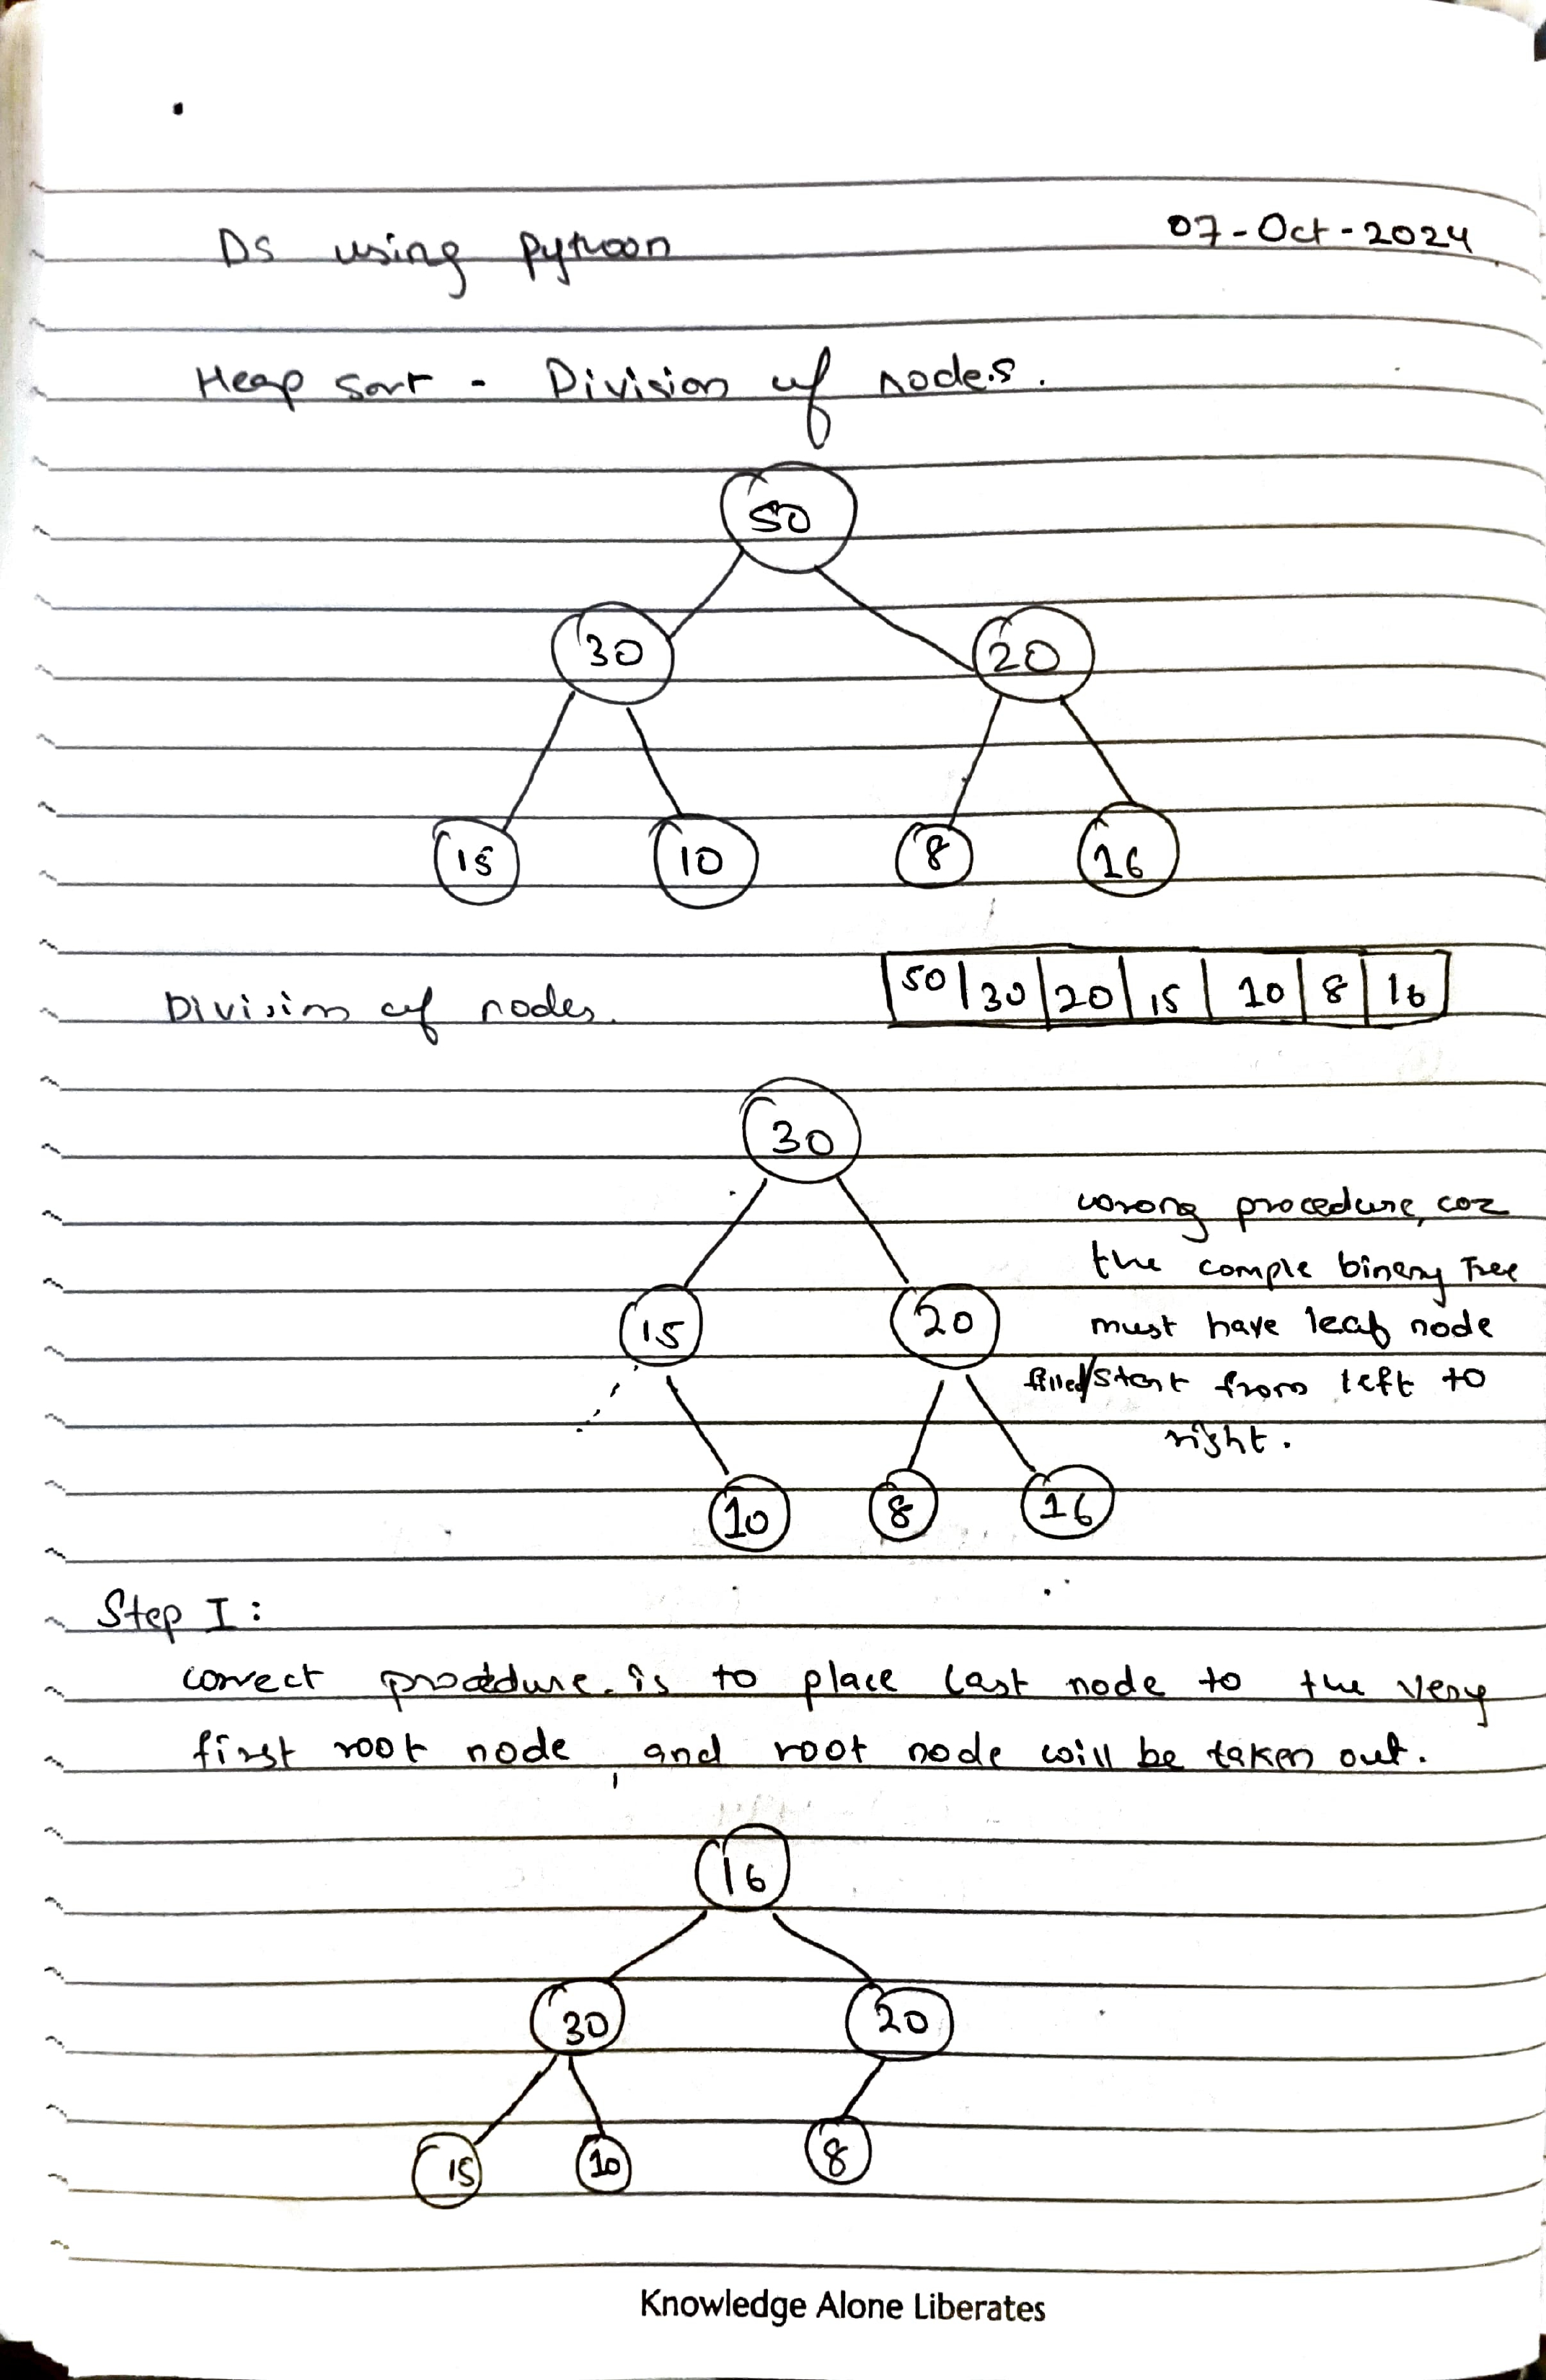 DS using python
07-Oct-2024
Heap sort - Division of nodes.
50
30 20
15 10 8 16
Division of nodes.
50 30 20 15 10 8 16
30
15 20
10 8 16
wrong procedure, coz
the comple binary Tree
must have leaf node
filled/start from left to
right.
Step I:
correct procedure is to place last node to the very
first root node, and root node will be taken out.
16
30 20
15 10 8
Knowledge Alone Liberates